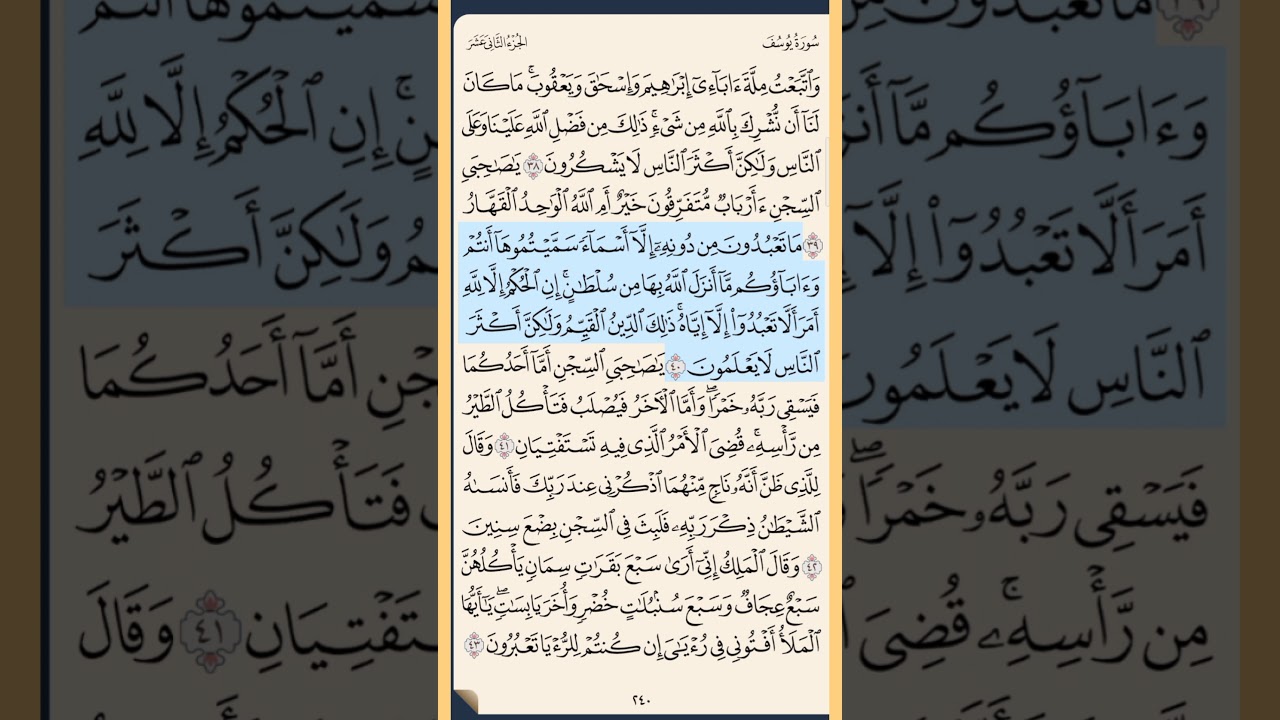 سُورَةُ يُوسُفَ
الجُزْءُ الثَّانِي عَشَرَ
وَٱتَّبَعۡتُ مِلَّةَ ءَابَآءِيٓ إِبۡرَٰهِيمَ وَإِسۡحَٰقَ وَيَعۡقُوبَۚ مَا كَانَ
لَنَآ أَن نُّشۡرِكَ بِٱللَّهِ مِن شَيۡءٖۚ ذَٰلِكَ مِن فَضۡلِ ٱللَّهِ عَلَيۡنَا وَعَلَى
ٱلنَّاسِ وَلَٰكِنَّ أَكۡثَرَ ٱلنَّاسِ لَا يَشۡكُرُونَ ٣٨ يَٰصَٰحِبَيِ
ٱلسِّجۡنِ ءَأَرۡبَابٞ مُّتَفَرِّقُونَ خَيۡرٌ أَمِ ٱللَّهُ ٱلۡوَٰحِدُ ٱلۡقَهَّارُ
٣٩ مَا تَعۡبُدُونَ مِن دُونِهِۦٓ إِلَّآ أَسۡمَآءٗ سَمَّيۡتُمُوهَآ أَنتُمۡ
وَءَابَآؤُكُم مَّآ أَنزَلَ ٱللَّهُ بِهَا مِن سُلۡطَٰنٍۚ إِنِ ٱلۡحُكۡمُ إِلَّا لِلَّهِ
أَمَرَ أَلَّا تَعۡبُدُوٓاْ إِلَّآ إِيَّاهُۚ ذَٰلِكَ ٱلدِّينُ ٱلۡقَيِّمُ وَلَٰكِنَّ أَكۡثَرَ
ٱلنَّاسِ لَا يَعۡلَمُونَ ٤٠ يَٰصَٰحِبَيِ ٱلسِّجۡنِ أَمَّآ أَحَدُكُمَا
فَيَسۡقِي رَبَّهُۥ خَمۡرٗاۖ وَأَمَّا ٱلۡأٓخَرُ فَيُصۡلَبُ فَتَأۡكُلُ ٱلطَّيۡرُ
مِن رَّأۡسِهِۦۚ قُضِيَ ٱلۡأَمۡرُ ٱلَّذِي فِيهِ تَسۡتَفۡتِيَانِ ٤١ وَقَالَ
لِلَّذِي ظَنَّ أَنَّهُۥ نَاجٖ مِّنۡهُمَا ٱذۡكُرۡنِي عِندَ رَبِّكَ فَأَنسَىٰهُ
ٱلشَّيۡطَٰنُ ذِكۡرَ رَبِّهِۦ فَلَبِثَ فِي ٱلسِّجۡنِ بِضۡعَ سِنِينَ
٤٢ وَقَالَ ٱلۡمَلِكُ إِنِّيٓ أَرَىٰ سَبۡعَ بَقَرَٰتٖ سِمَانٖ يَأۡكُلُهُنَّ
سَبۡعٌ عِجَافٞ وَسَبۡعَ سُنۢبُلَٰتٍ خُضۡرٖ وَأُخَرَ يَابِسَٰتٖۖ يَٰٓأَيُّهَا
ٱلۡمَلَأُ أَفۡتُونِي فِي رُءۡيَٰيَ إِن كُنتُمۡ لِلرُّءۡيَا تَعۡبُرُونَ ٤٣
٢٤٠